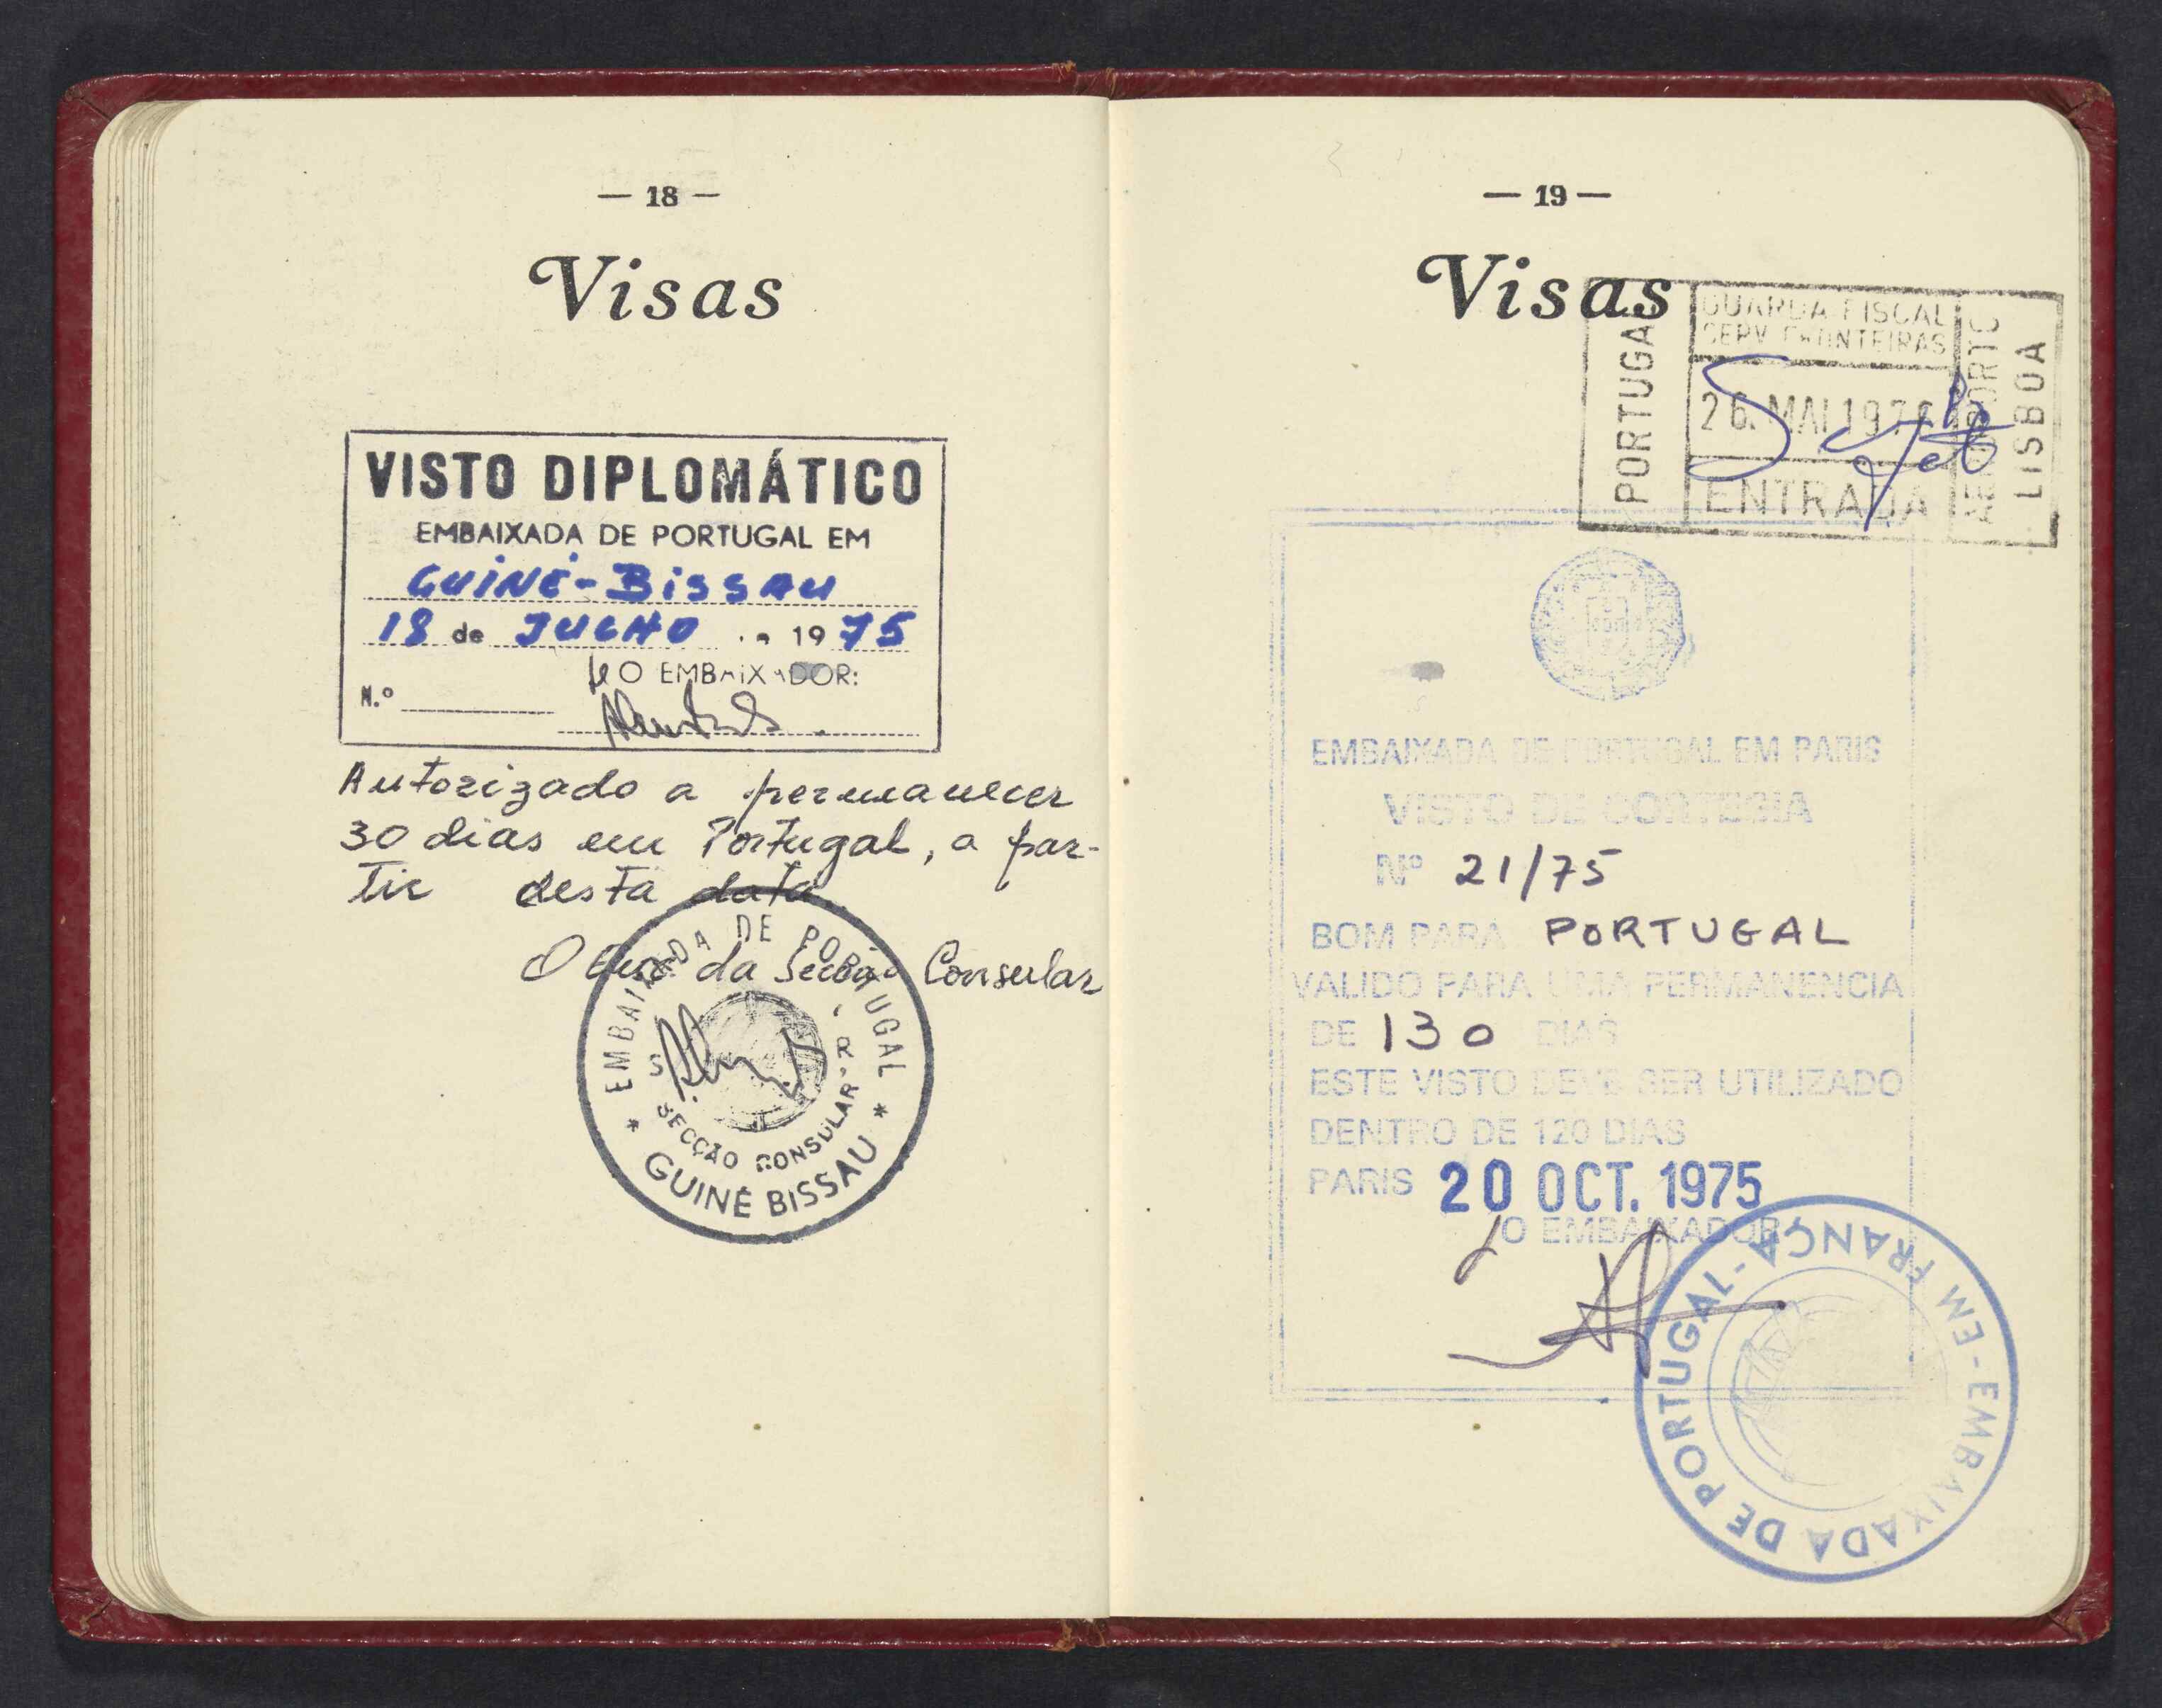 — 18 —
Visas
VISTO DIPLOMÁTICO
EMBAIXADA DE PORTUGAL EM
GUINÉ-BISSAU
18 de JULHO 1975
O EMBAIXADOR:
N.º
Autorizado a permanecer
30 dias em Portugal, a par-
tir desta data
O da Secção Consular
EMBAIXADA DE PORTUGAL
S. R.
SECÇÃO CONSULAR
* GUINÉ BISSAU *
— 19 —
Visas
PORTUGAL
GUARDA FISCAL
SERV. FRONTEIRAS
26. MAI 197
ENTRADA
AEROPORTO
LISBOA
EMBAIXADA DE PORTUGAL EM PARIS
VISTO DE CORTESIA
Nº 21/75
BOM PARA PORTUGAL
VALIDO PARA UMA PERMANENCIA
DE 130 DIAS
ESTE VISTO DEVE SER UTILIZADO
DENTRO DE 120 DIAS
PARIS 20 OCT. 1975
O EMBAIXADOR
EMBAIXADA DE PORTUGAL - EM FRANÇA -